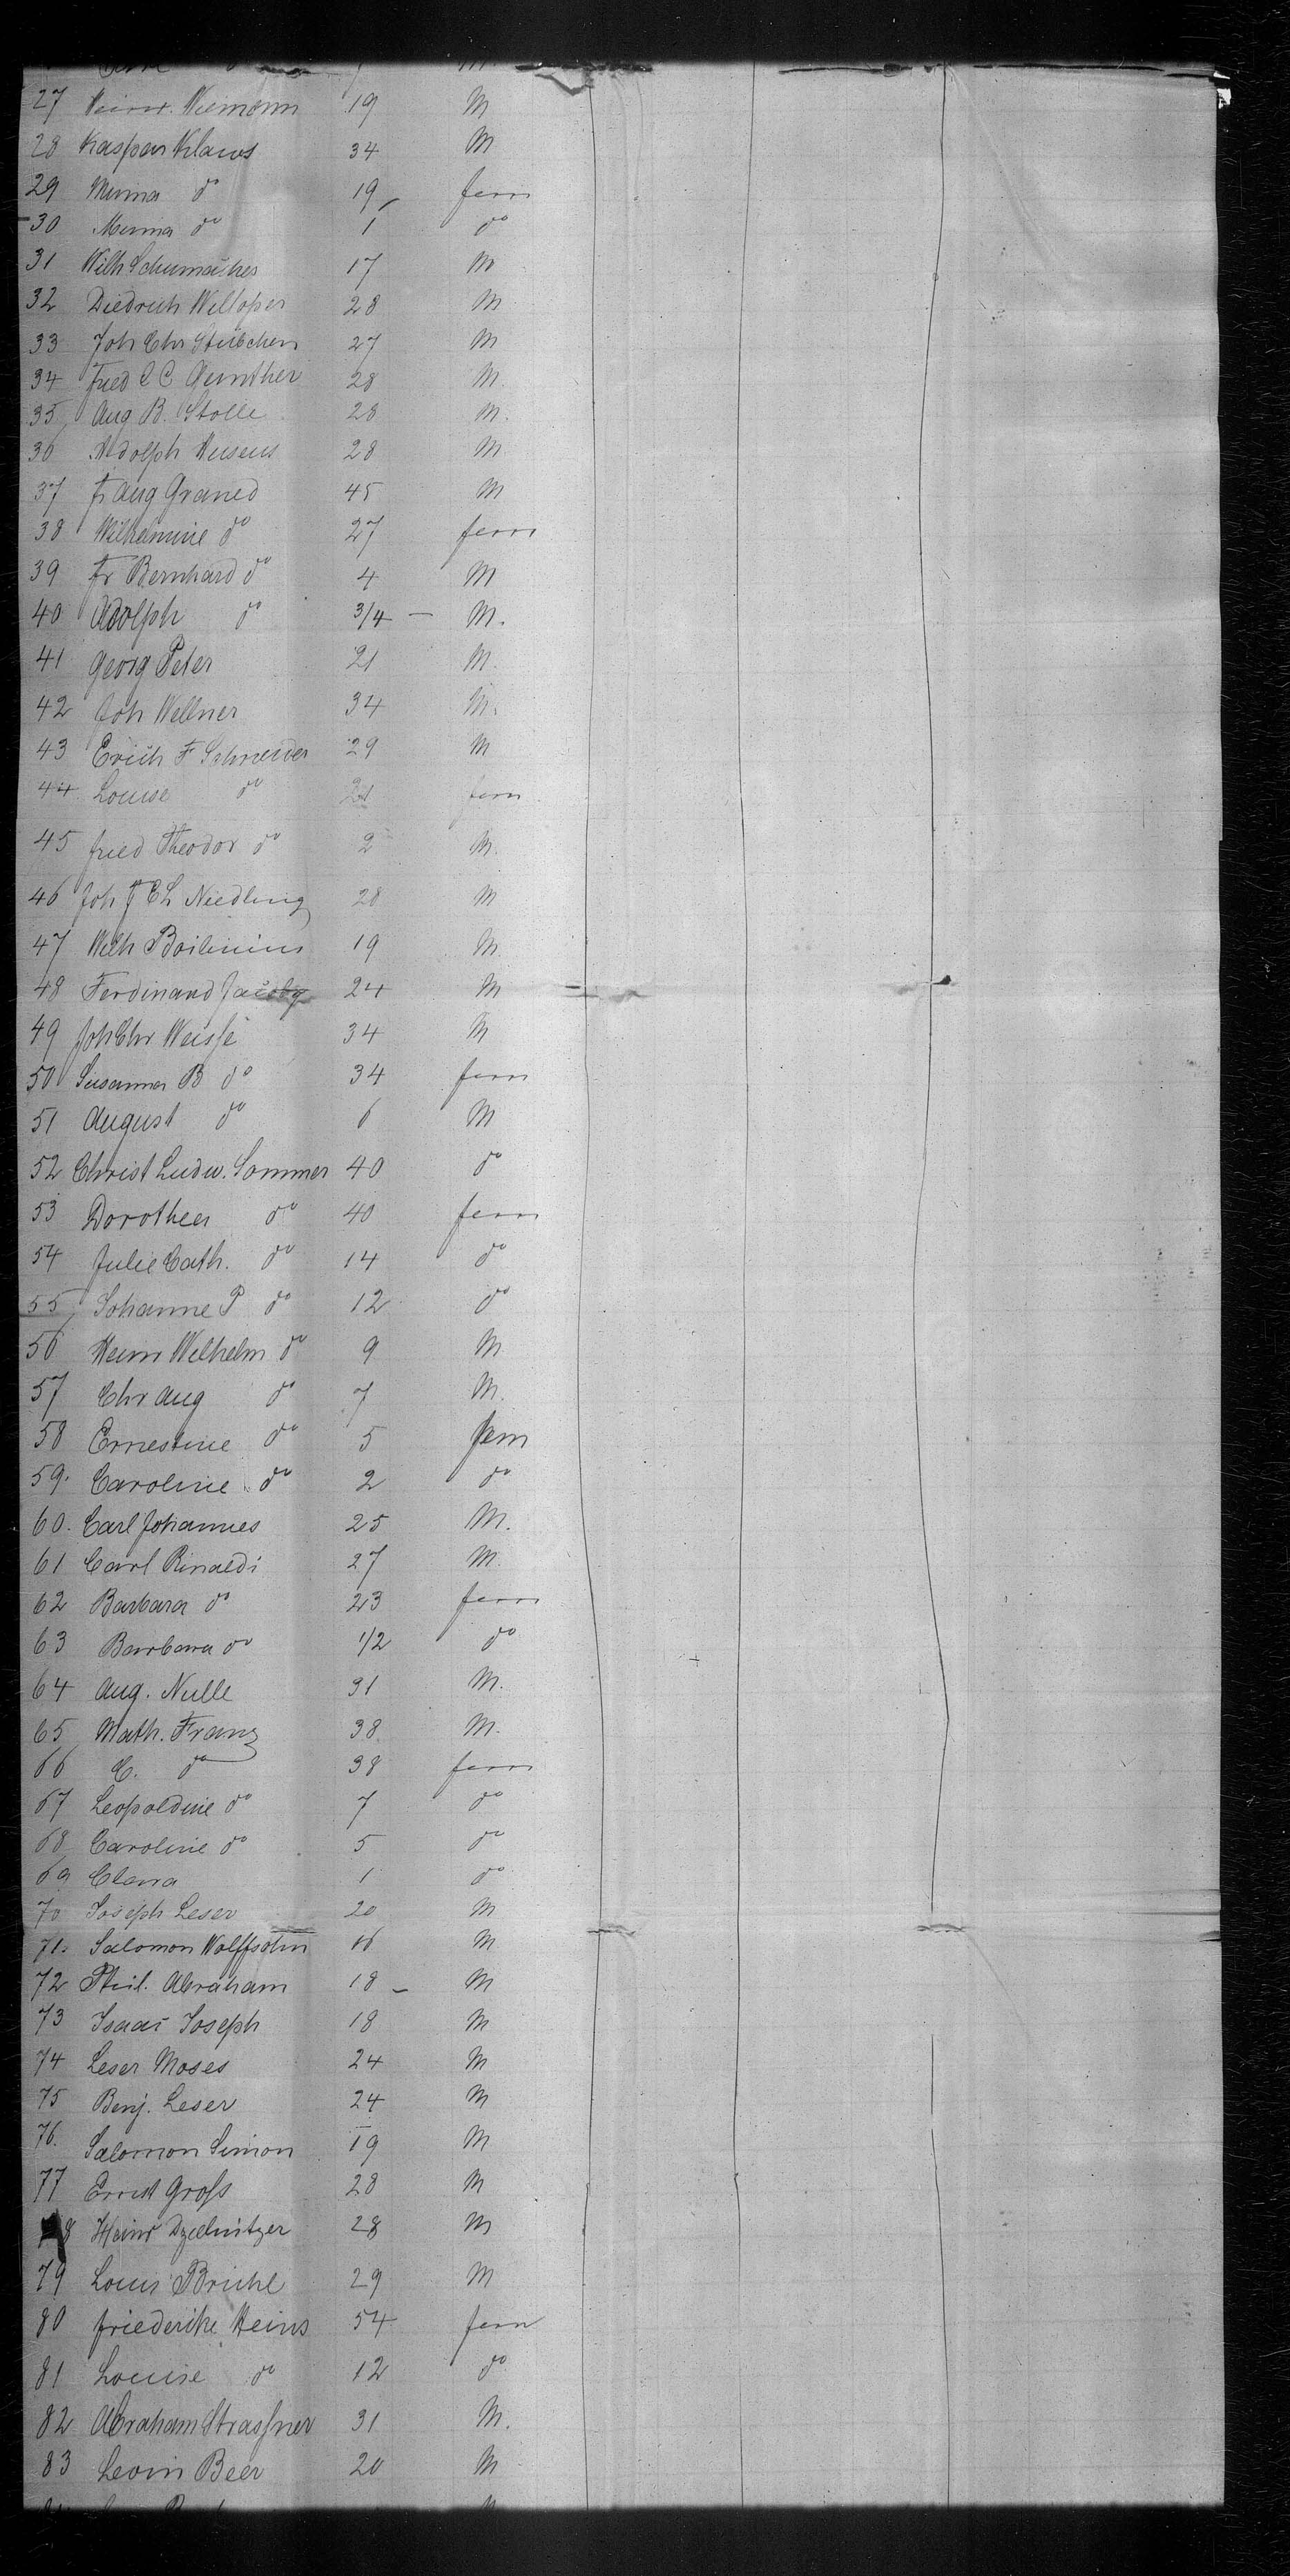 27 Heinr. Niemann 19 M
28 Kaspar Klaws 34 M
29 Minna do 19 fem
30 Minna do 1 do
31 Wilh Schumacher 17 M
32 Diedrich Willoper 28 M
33 Joh Chr Stübchen 27 M
34 Fred C C Gunther 28 M
35 Aug B. Stolle 28 M.
36 Adolph Heiseus 28 M
37 Fr Aug Graned 45 M
38 Wilhemine do 27 fem
39 Fr Bernhard do 4 M
40 Adolph do 3/4 — M.
41 Georg Peter 21 M.
42 Joh Wellner 34 M.
43 Erich F Schneider 29 M
44 Louise do 21 fem
45 Fried Theodor do 2 M.
46 Joh F E L Niedling 28 M
47 Wilh 19 M
48 Ferdinand Jacoby 24 M
49 Joh Chr Weisse 34 M
50 Susanna B do 34 fem
51 August do 6 M
52 Christ Ludw. Sommer 40 do
53 Dorothea do 40 fem
54 Julie Cath. do 14 do
55 Johanne P do 12 do
56 Heinr Wilhelm do 9 M
57 Chr Aug do 7 M.
58 Ernestine do 5 fem
59. Caroline do 2 do
60. Carl Johannes 25 M.
61 Carl Rinaldi 27 M
62 Barbara do 23 fem
63 Barbara do 1/2 do
64 Aug. Nulle 31 M.
65 Math. Franz 38 M.
66 C. do 38 fem
67 Leopoldine do 7 do
68 Caroline do 5 do
69 Clara 1 do
70 Joseph Leser 20 M
71. Salomon Wolffsohn 16 M
72 Phil. Abraham 18 – M
73 Isaac Joseph 18 M
74 Leser Moses 24 M
75 Benj. Leser 24 M
76. Salomon Simon 19 M
77 Ernst Gross 28 M
78 Heinr Dzielnitzer 28 M
79 Louis Brühl 29 M
80 Friederike Heins 54 fem
81 Louise do 12 do
82 Abraham Strassner 31 M.
83 Levin Beer 20 M